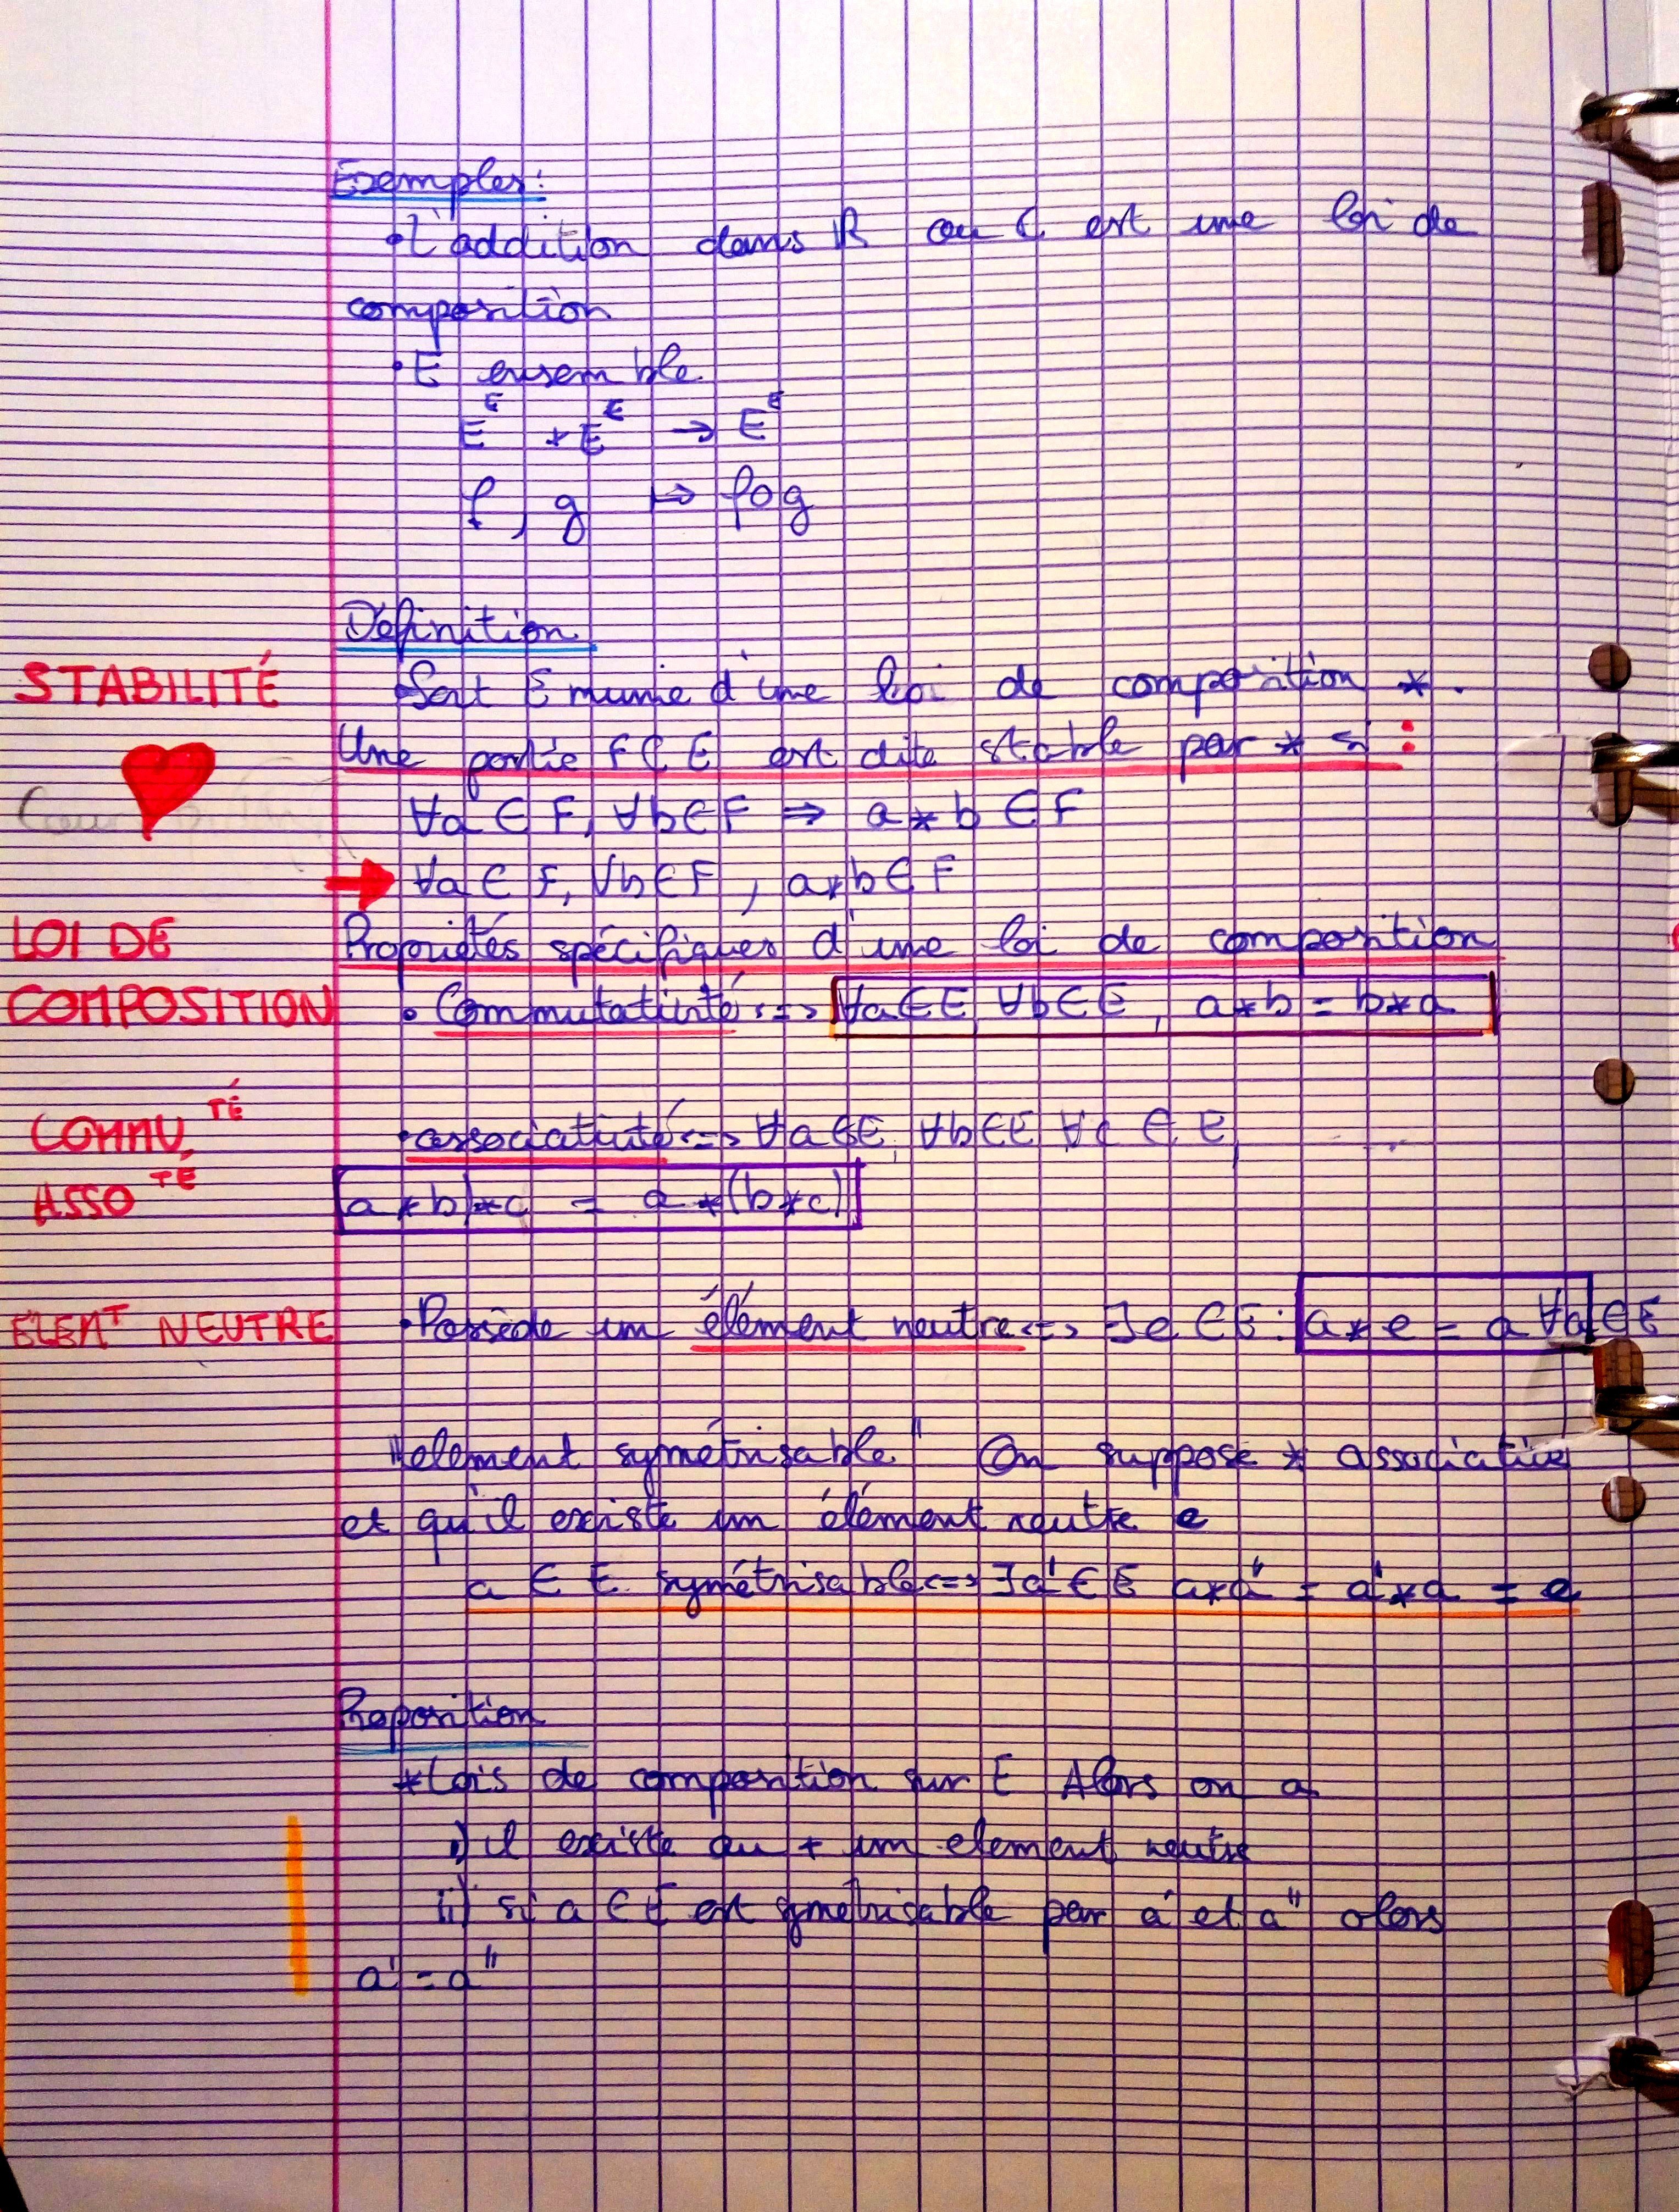 Exemples:
• L'addition dans ℝ ou ℂ est une loi de
composition
• E ensemble
E^E * E^E → E^E
f, g ↦ fog
Définition
STABILITÉ
• Soit E munie d'une loi de composition *.
Une partie F ⊂ E est dite stable par * si :
∀a ∈ F, ∀b ∈ F ⇒ a * b ∈ F
→ ∀a ∈ F, ∀b ∈ F, a * b ∈ F
LOI DE
COMPOSITION
Propriétés spécifiques d'une loi de composition
• Commutativité <=> ∀a ∈ E, ∀b ∈ E, a * b = b * a
COMMU, TÉ
ASSO TÉ
• associativité <=> ∀a ∈ E, ∀b ∈ E ∀c ∈ E,
(a * b) * c = a * (b * c)
ÉLEMT NEUTRE
• Possède un élément neutre <=> ∃e ∈ E : a * e = a ∀a ∈ E
"element symétrisable" On suppose * associative
et qu'il existe un élément neutre e
a ∈ E symétrisable <=> ∃a' ∈ E a * a' = a' * a = e
Proposition
* Lois de composition sur E Alors on a
i) il existe au + un element neutre
ii) si a ∈ E est symetrisable par a' et a" alors
a' = a"